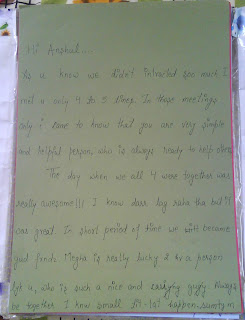 Hi Anshul....
As u know we didn't interacted so much I
met u only 4 to 5 times. In those meetings
only i came to know that you are very simple
and helpful person, who is always ready to help others
The day when we all 4 were together was
really awesome!!! I know darr lag raha tha but it
was great. In short period of time we all became
good friends. Megha is really lucky 2 hv a person
lyk u, who is such a nice and guy. Always
be together I know small happen